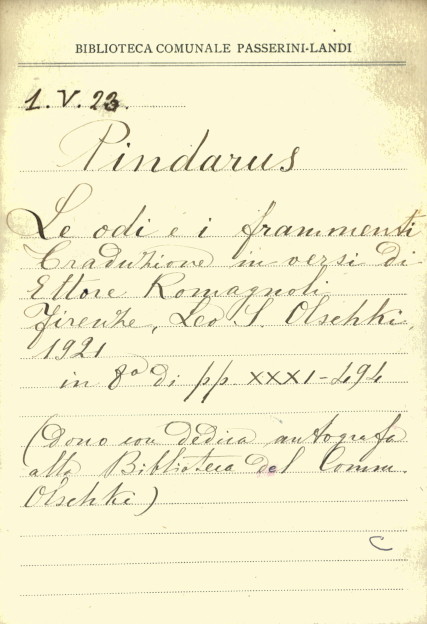 BIBLIOTECA COMUNALE PASSERINI-LANDI
1.V.23.
Pindarus
Le odi e i frammenti
Traduzione in versi di
Ettore Romagnoli
Firenze, Leo S. Olschki,
1921
in 8° di pp. XXXI-494
(dono con dedica autografa
alla Biblioteca del Comm.
Olschki)
C